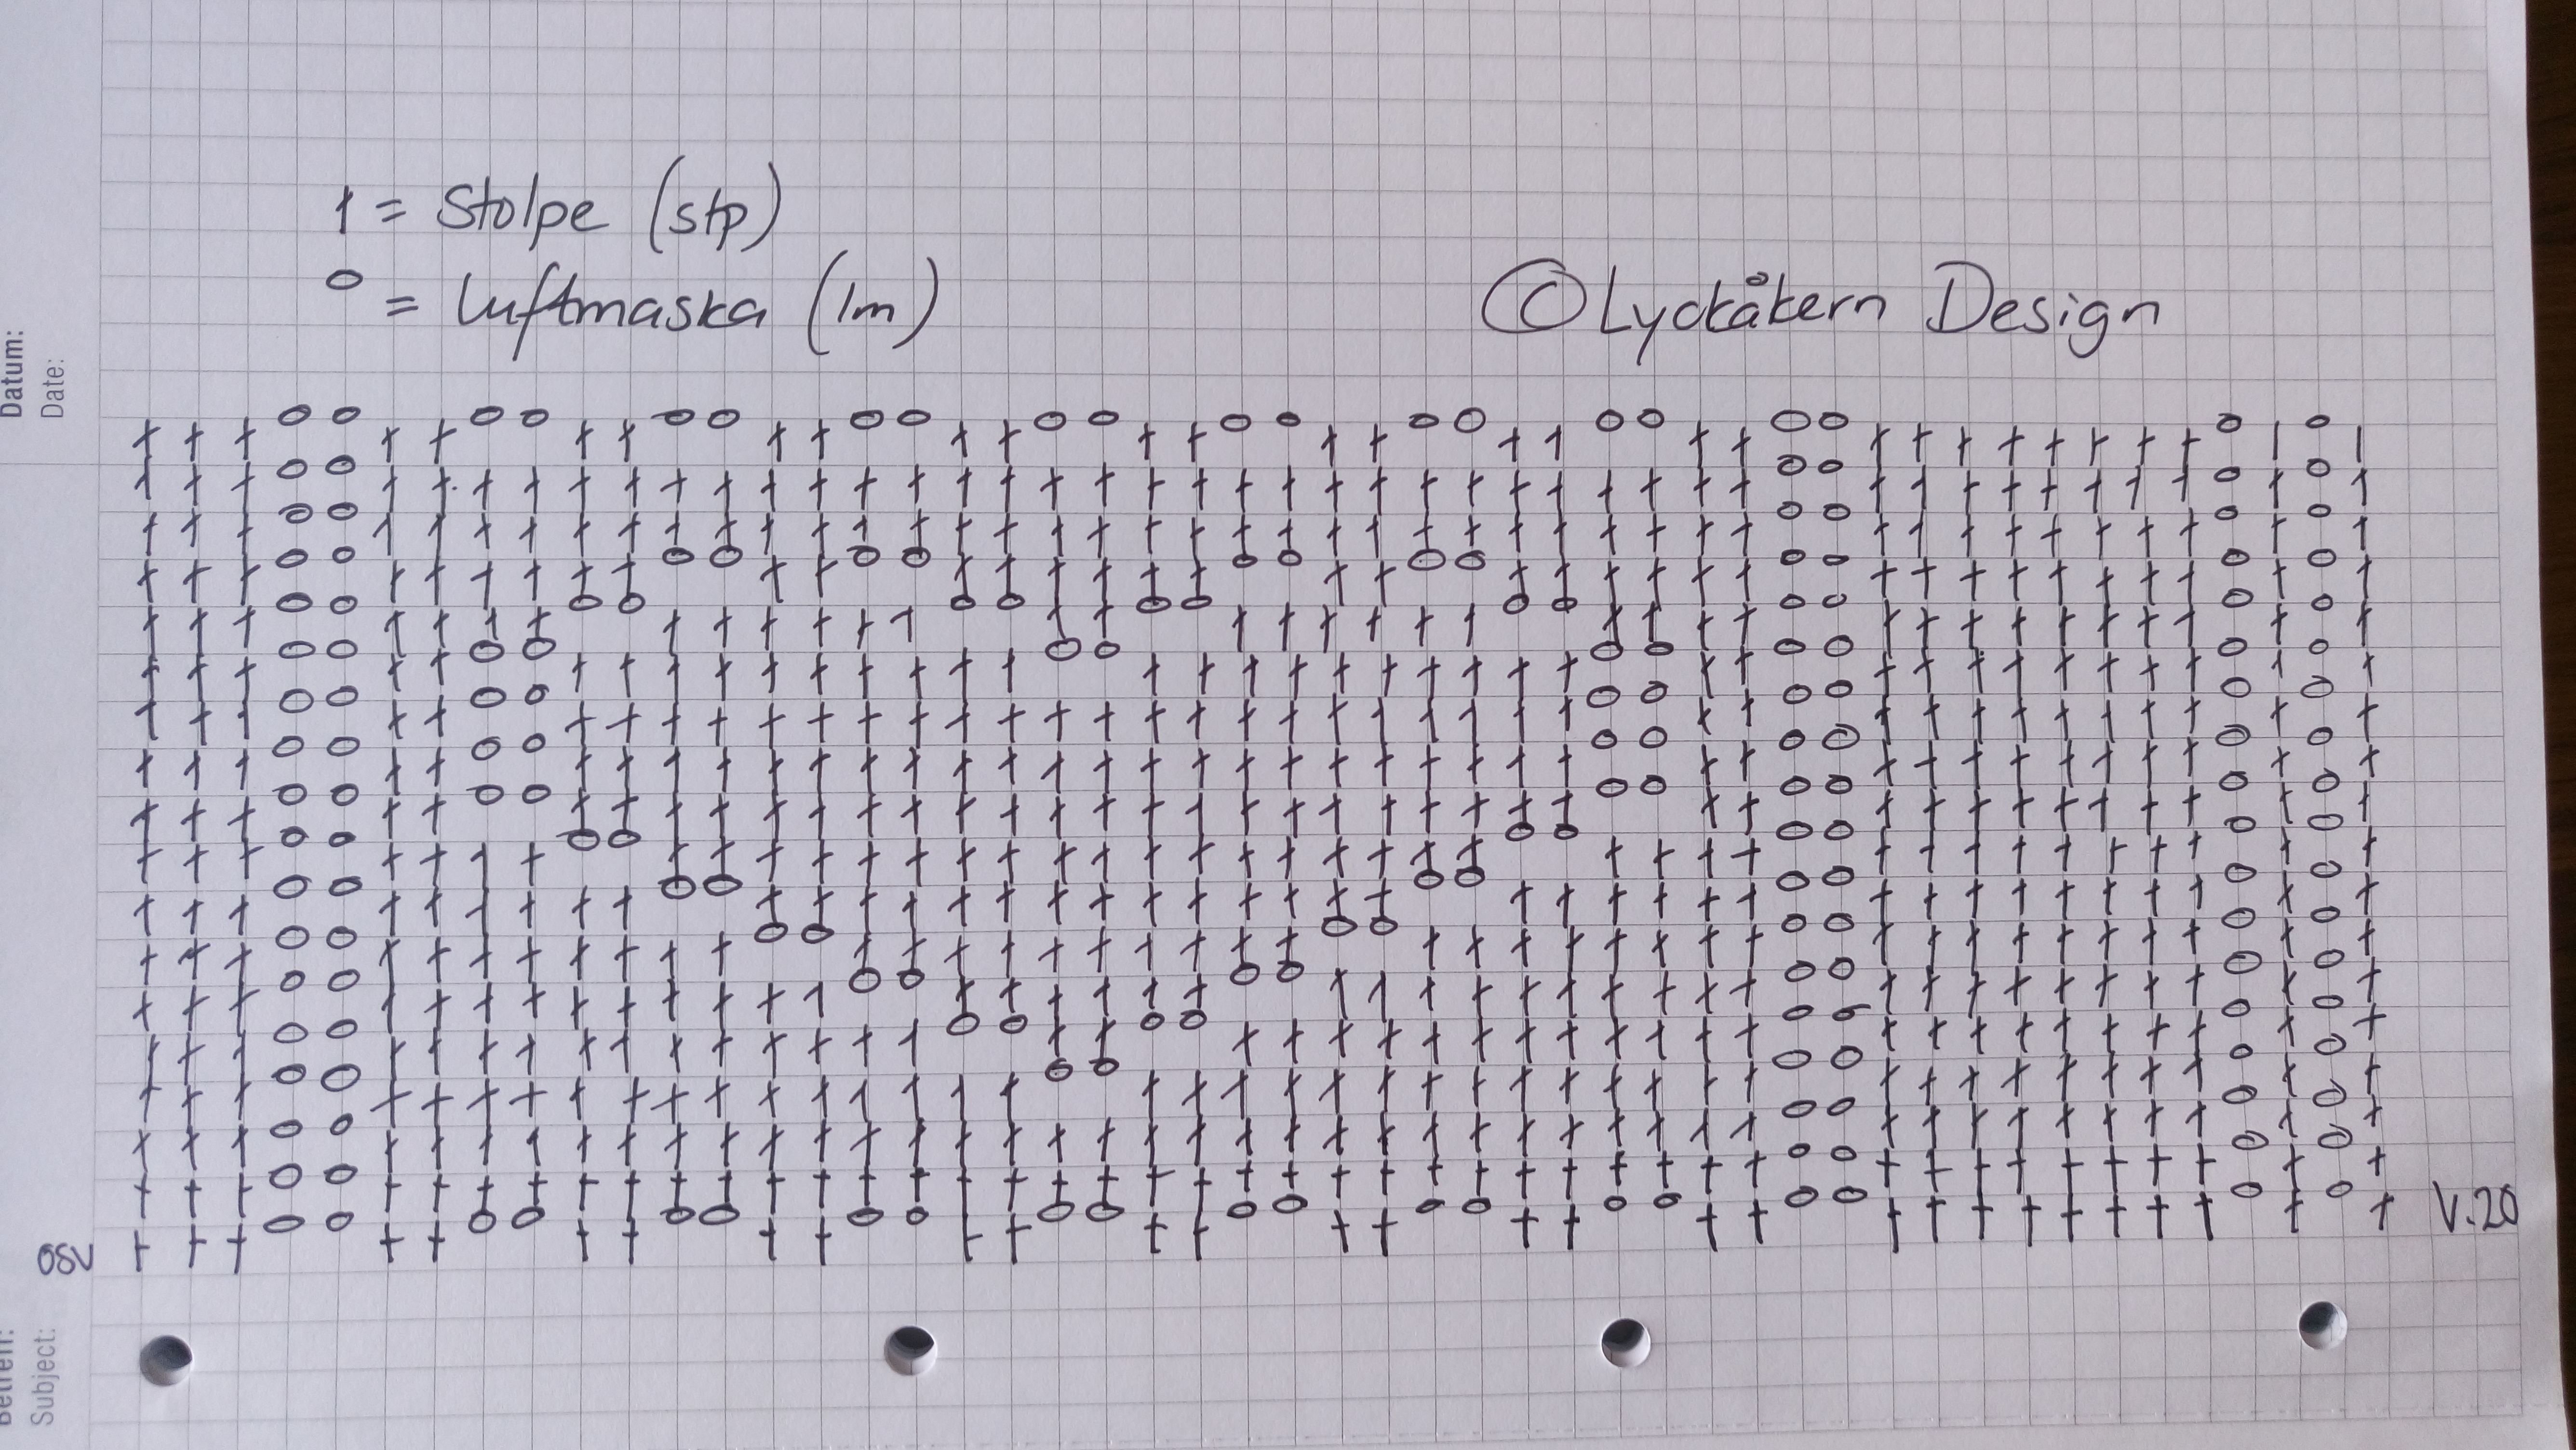 † = Stolpe (stp)
o = Luftmaska (lm)
© Lyckåkern Design
Datum:
Date:
osv
V.20
Betreff:
Subject: